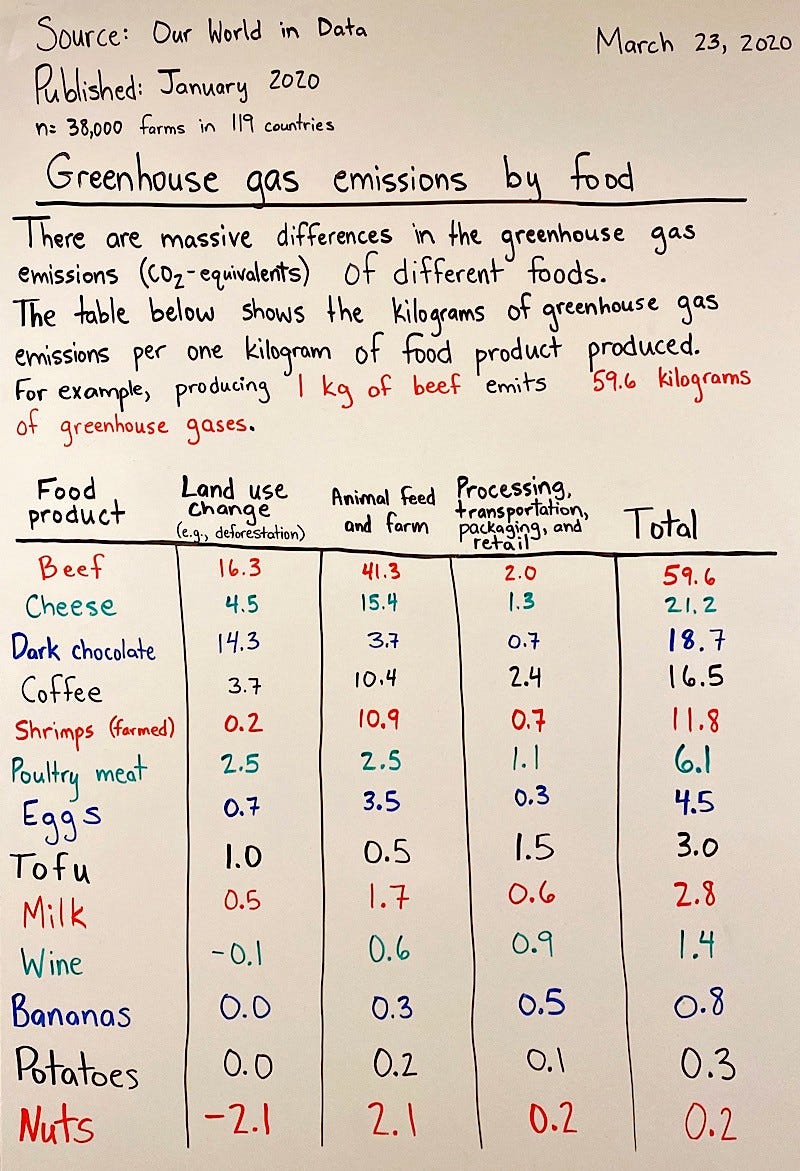 Source: Our World in Data
March 23, 2020
Published: January 2020
n= 38,000 farms in 119 countries
Greenhouse gas emissions by food
There are massive differences in the greenhouse gas
emissions (CO₂-equivalents) of different foods.
The table below shows the kilograms of greenhouse gas
emissions per one kilogram of food product produced.
For example, producing 1 kg of beef emits 59.6 kilograms
of greenhouse gases.
Food product Land use change (e.g., deforestation) Animal feed and farm Processing, transportation, packaging, and retail Total
Beef 16.3 41.3 2.0 59.6
Cheese 4.5 15.4 1.3 21.2
Dark chocolate 14.3 3.7 0.7 18.7
Coffee 3.7 10.4 2.4 16.5
Shrimps (farmed) 0.2 10.9 0.7 11.8
Poultry meat 2.5 2.5 1.1 6.1
Eggs 0.7 3.5 0.3 4.5
Tofu 1.0 0.5 1.5 3.0
Milk 0.5 1.7 0.6 2.8
Wine -0.1 0.6 0.9 1.4
Bananas 0.0 0.3 0.5 0.8
Potatoes 0.0 0.2 0.1 0.3
Nuts -2.1 2.1 0.2 0.2